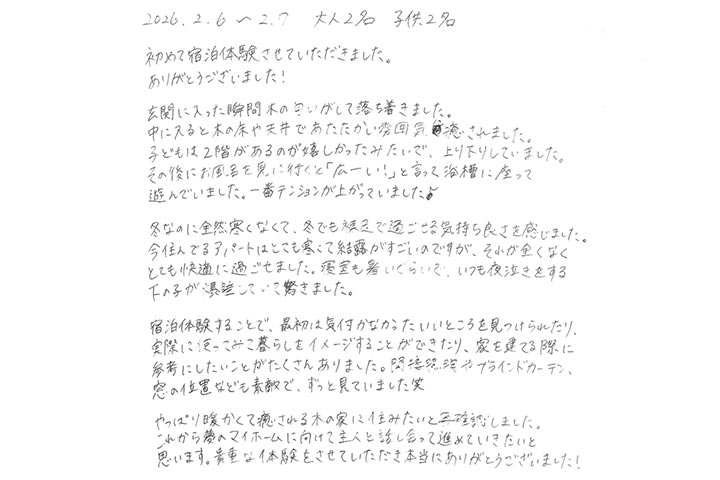 2026.2.6 〜 2.7 大人2名 子供2名
初めて宿泊体験させていただきました。
ありがとうございました！
玄関に入った瞬間木の匂いがして落ち着きました。
中に入ると木の床や天井であたたかい雰囲気 癒されました。
子どもは2階があるのが嬉しかったみたいで、上り下りしていました。
その後にお風呂を見に行くと「広ーい！」と言って浴槽に座って
遊んでいました。一番テンションが上がっていました♪
冬なのに全然寒くなくて、冬でも裸足で過ごせる気持ち良さを感じました。
今住んでるアパートはとても寒くて結露がすごいのですが、それが全くなく
とても快適に過ごせました。寝室も暑いぐらいで、いつも夜泣きをする
下の子が爆睡していて驚きました。
宿泊体験することで、最初は気付かなかったいいところを見つけられたり、
実際に使ってみて暮らしをイメージすることができたり、家を建てる際に
参考にしたいことがたくさんありました。間接照明やブラインドカーテン、
窓の位置なども素敵で、ずっと見ていました笑
やっぱり暖かくて癒される木の家に住みたいと再確認しました。
これから夢のマイホームに向けて主人と話し合って進めていきたいと
思います。貴重な体験をさせていただき本当にありがとうございました！